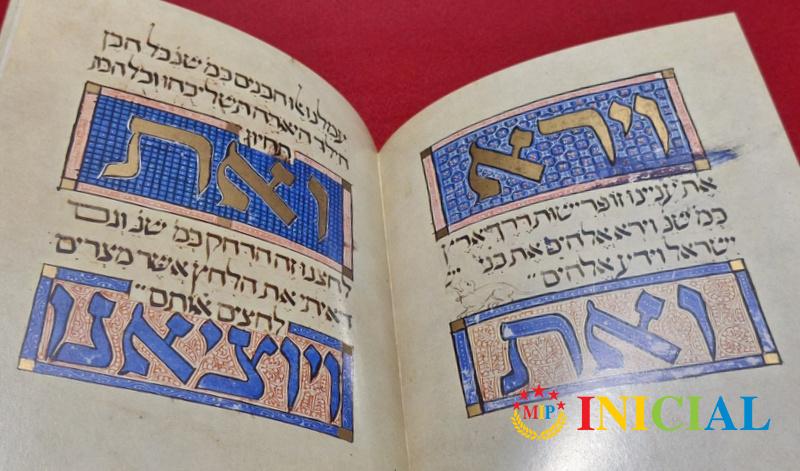 וירא
את עניינו זו פרישות דרך ארץ
כמ שנ וירא אלהים את בני
ישראל וידע אלהים
ואת
עמלנו אלו הבנים כמ שנ כל הבן
הילד היארה תשליכהו וכל הבת
תחיון
ואת
לחצנו זה הדחק כמ שנ וגם
ראיתי את הלחץ אשר מצרים
לחצים אותם
ויוציאנו
MIP INICIAL